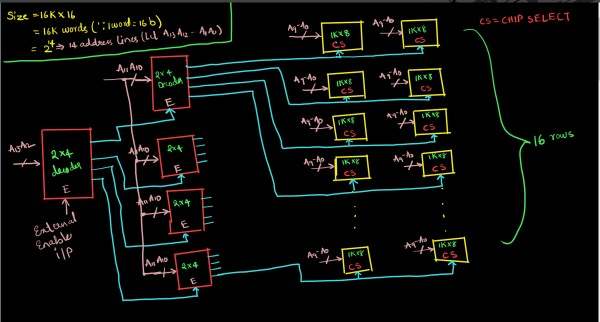 Size = 16K × 16
= 16K words (∵ 1 word = 16 b)
⇒ 14 address lines
CS = CHIP SELECT
A11 A10
2×4
Decoder
E
A13 A12
2×4
decoder
E
External
Enable
i/P
A11 A10
2×4
E
A11 A10
2×4
E
A11 A10
2×4
E
A9-A0
1K×8
CS
A9-A0
1K×8
CS
A9-A0
1K×8
CS
A9-A0
1K×8
CS
A9-A0
1K×8
CS
A9-A0
1K×8
CS
A9-A0
1K×8
CS
A9-A0
1K×8
CS
A9-A0
1K×8
CS
A9-A0
1K×8
CS
16 rows